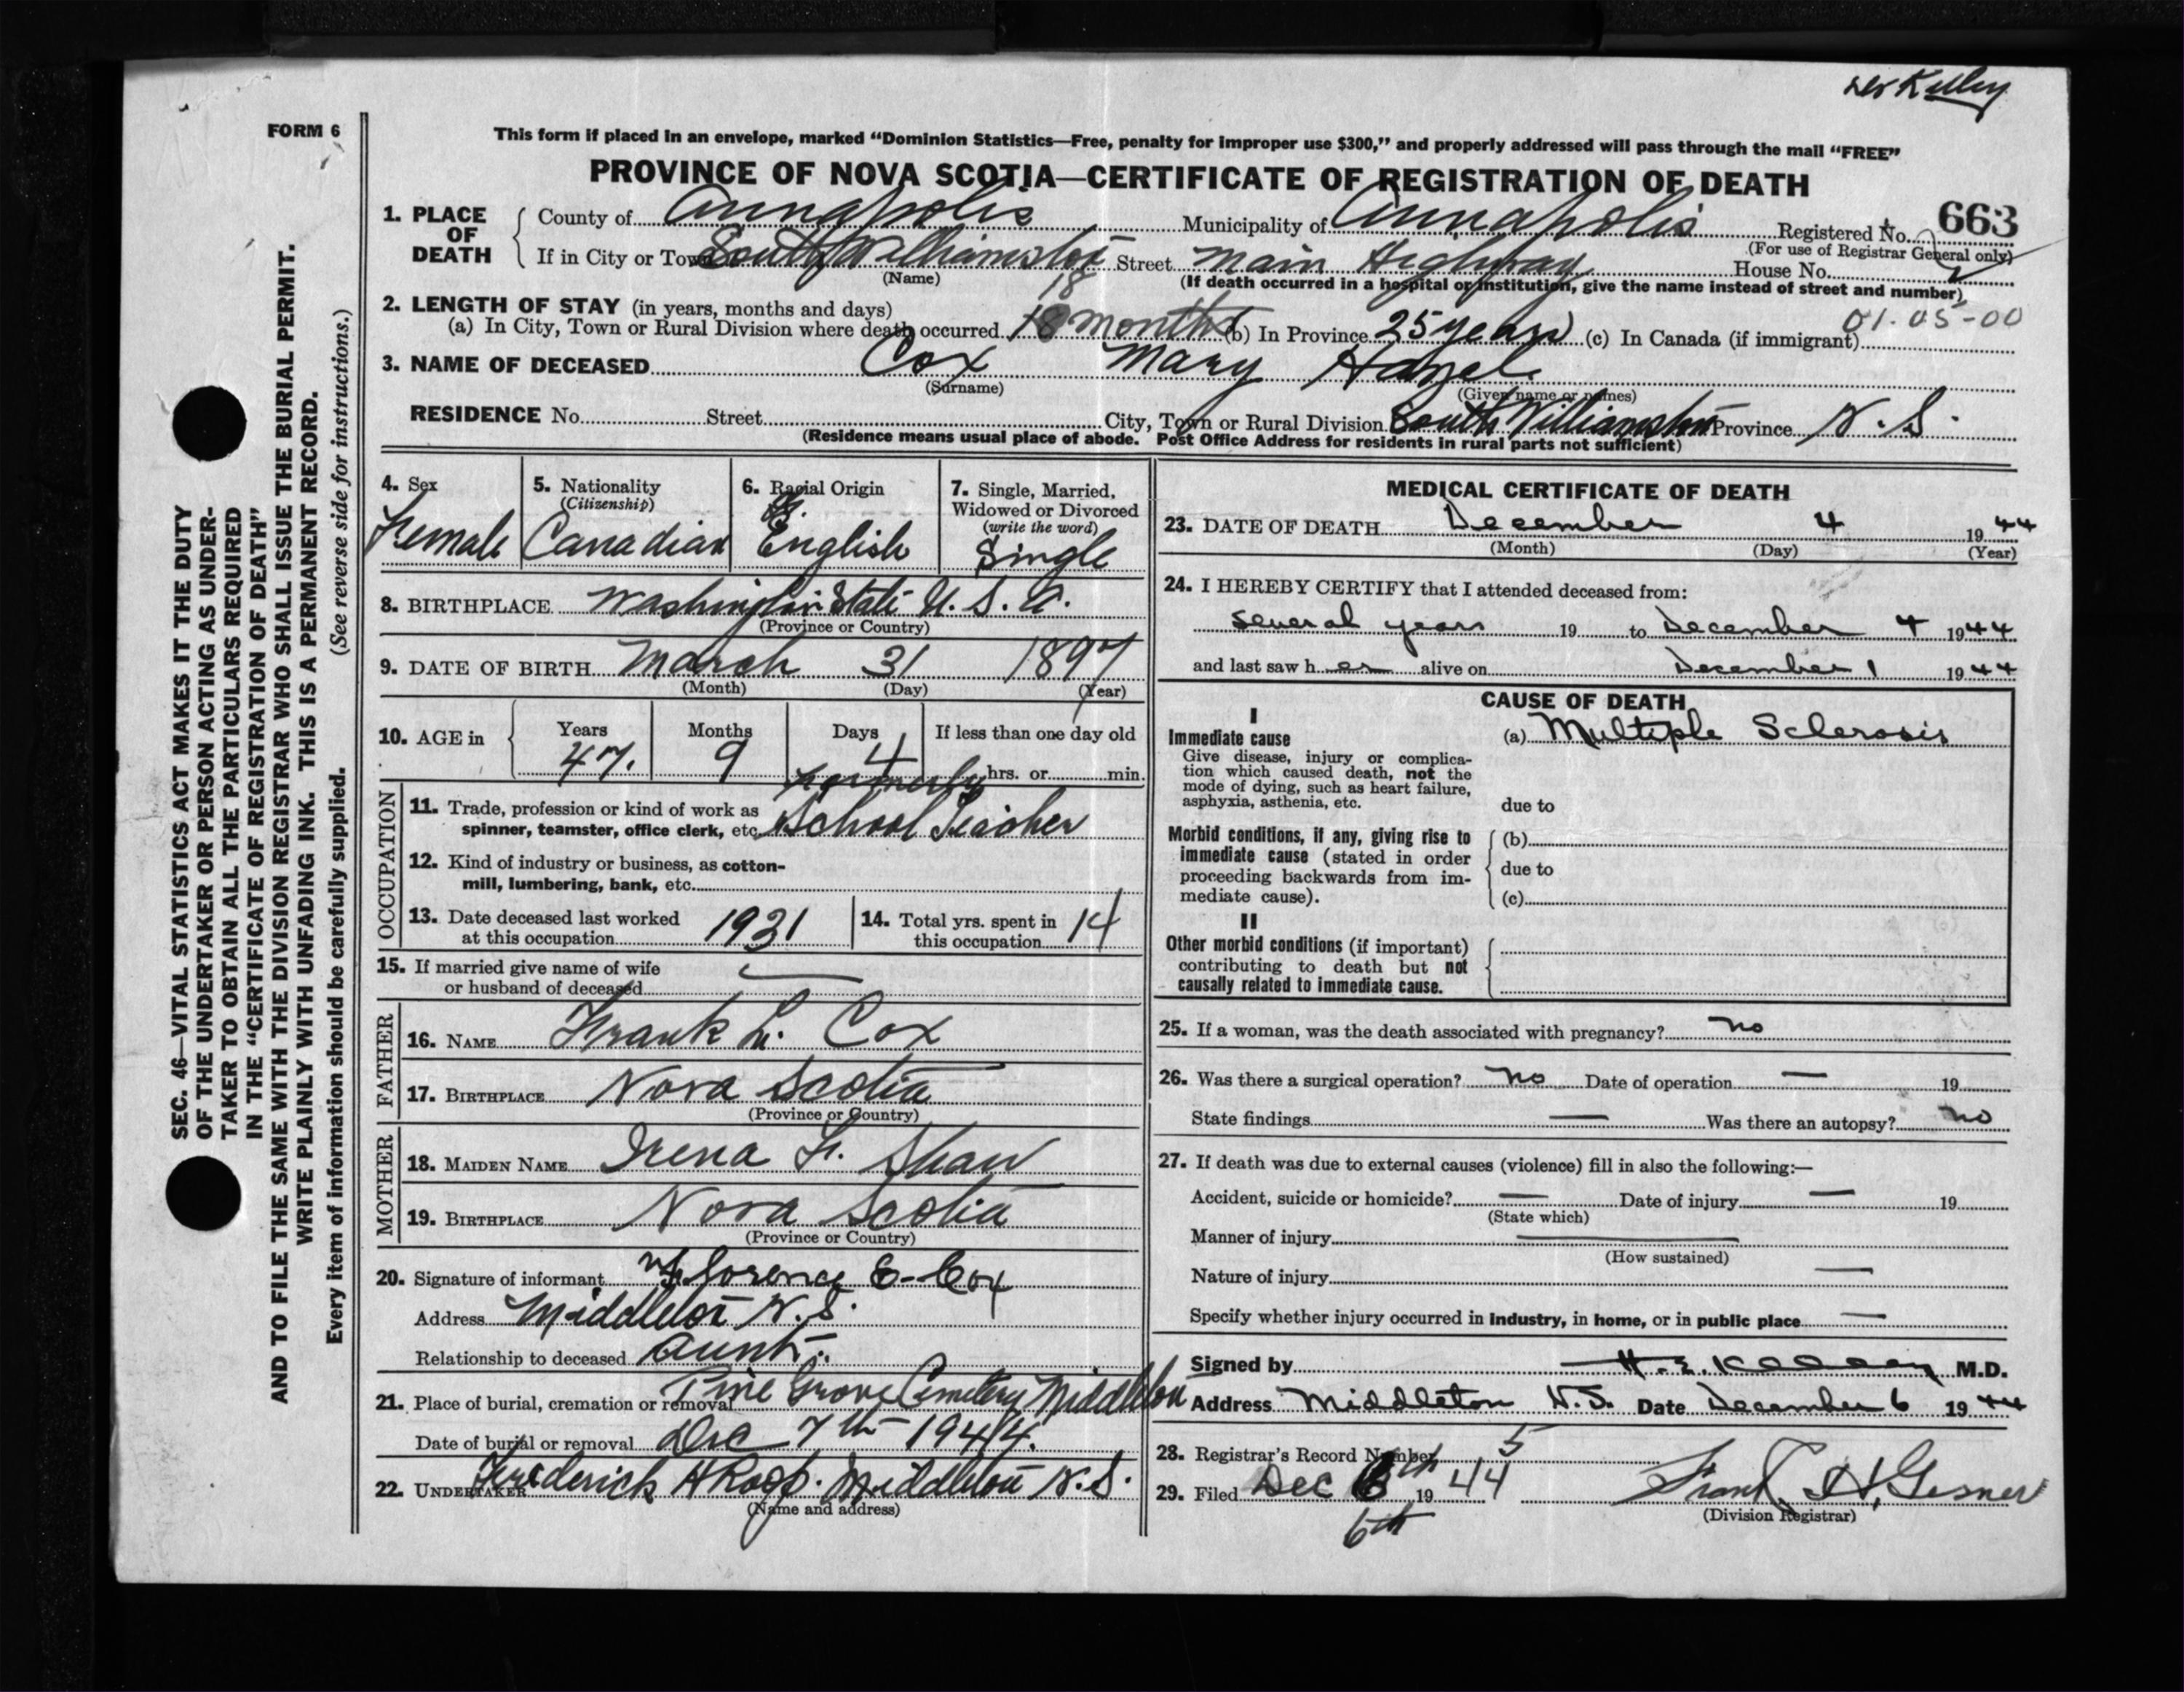 Dr Kelley
FORM 6
This form if placed in an envelope, marked “Dominion Statistics—Free, penalty for improper use $300,” and properly addressed will pass through the mail “FREE”
PROVINCE OF NOVA SCOTIA—CERTIFICATE OF REGISTRATION OF DEATH
1. PLACE OF DEATH { County of Annapolis Municipality of Annapolis Registered No. 663
(For use of Registrar General only)
If in City or Town South Williamston Street Main Highway House No.
(Name) (If death occurred in a hospital or institution, give the name instead of street and number)
18
2. LENGTH OF STAY (in years, months and days)
(a) In City, Town or Rural Division where death occurred 18 months (b) In Province 25 years (c) In Canada (if immigrant) 01-05-00
3. NAME OF DECEASED Cox Mary Hazel
(Surname) (Given name or names)
RESIDENCE No. Street City, Town or Rural Division South Williamston Province N.S.
(Residence means usual place of abode. Post Office Address for residents in rural parts not sufficient)
4. Sex
Female
5. Nationality
(Citizenship)
Canadian
6. Racial Origin
English
7. Single, Married,
Widowed or Divorced
(write the word)
Single
8. BIRTHPLACE Washington State U.S.A.
(Province or Country)
9. DATE OF BIRTH March 31 1897
(Month) (Day) (Year)
10. AGE in { Years Months Days If less than one day old
47. 9 4 hrs. or min.
OCCUPATION
formerly
11. Trade, profession or kind of work as
spinner, teamster, office clerk, etc. School Teacher
12. Kind of industry or business, as cotton-
mill, lumbering, bank, etc.
13. Date deceased last worked
at this occupation 1931
14. Total yrs. spent in
this occupation 14
15. If married give name of wife
or husband of deceased —
FATHER
16. NAME Frank L. Cox
17. BIRTHPLACE Nova Scotia
(Province or Country)
MOTHER
18. MAIDEN NAME Irena F. Shaw
19. BIRTHPLACE Nova Scotia
(Province or Country)
20. Signature of informant Florence E-Cox
Address Middleton N.S.
Relationship to deceased Aunt.
21. Place of burial, cremation or removal Pine Grove Cemetery Middleton
Date of burial or removal Dec 7th 1944.
22. UNDERTAKER Frederick H Roop. Middleton N.S.
(Name and address)
MEDICAL CERTIFICATE OF DEATH
23. DATE OF DEATH December 4 1944
(Month) (Day) (Year)
24. I HEREBY CERTIFY that I attended deceased from:
Several years 19 to December 4 1944
and last saw her alive on December 1 1944
CAUSE OF DEATH
I
Immediate cause
Give disease, injury or complica-
tion which caused death, not the
mode of dying, such as heart failure,
asphyxia, asthenia, etc.
(a) Multiple Sclerosis
due to
Morbid conditions, if any, giving rise to
immediate cause (stated in order
proceeding backwards from im-
mediate cause).
(b)
due to
(c)
II
Other morbid conditions (if important)
contributing to death but not
causally related to immediate cause.
25. If a woman, was the death associated with pregnancy? no
26. Was there a surgical operation? no Date of operation — 19
State findings — Was there an autopsy? no
27. If death was due to external causes (violence) fill in also the following:—
Accident, suicide or homicide? — Date of injury — 19
(State which)
Manner of injury —
(How sustained)
Nature of injury —
Specify whether injury occurred in industry, in home, or in public place —
Signed by H. E. Kelley M.D.
Address Middleton N.S. Date December 6 1944
28. Registrar's Record Number 5
29. Filed Dec 6th 1944 Frank H. Gesner
6th (Division Registrar)
SEC. 46—VITAL STATISTICS ACT MAKES IT THE DUTY
OF THE UNDERTAKER OR PERSON ACTING AS UNDER-
TAKER TO OBTAIN ALL THE PARTICULARS REQUIRED
IN THE “CERTIFICATE OF REGISTRATION OF DEATH”
AND TO FILE THE SAME WITH THE DIVISION REGISTRAR WHO SHALL ISSUE THE BURIAL PERMIT.
WRITE PLAINLY WITH UNFADING INK. THIS IS A PERMANENT RECORD.
Every item of information should be carefully supplied. (See reverse side for instructions.)